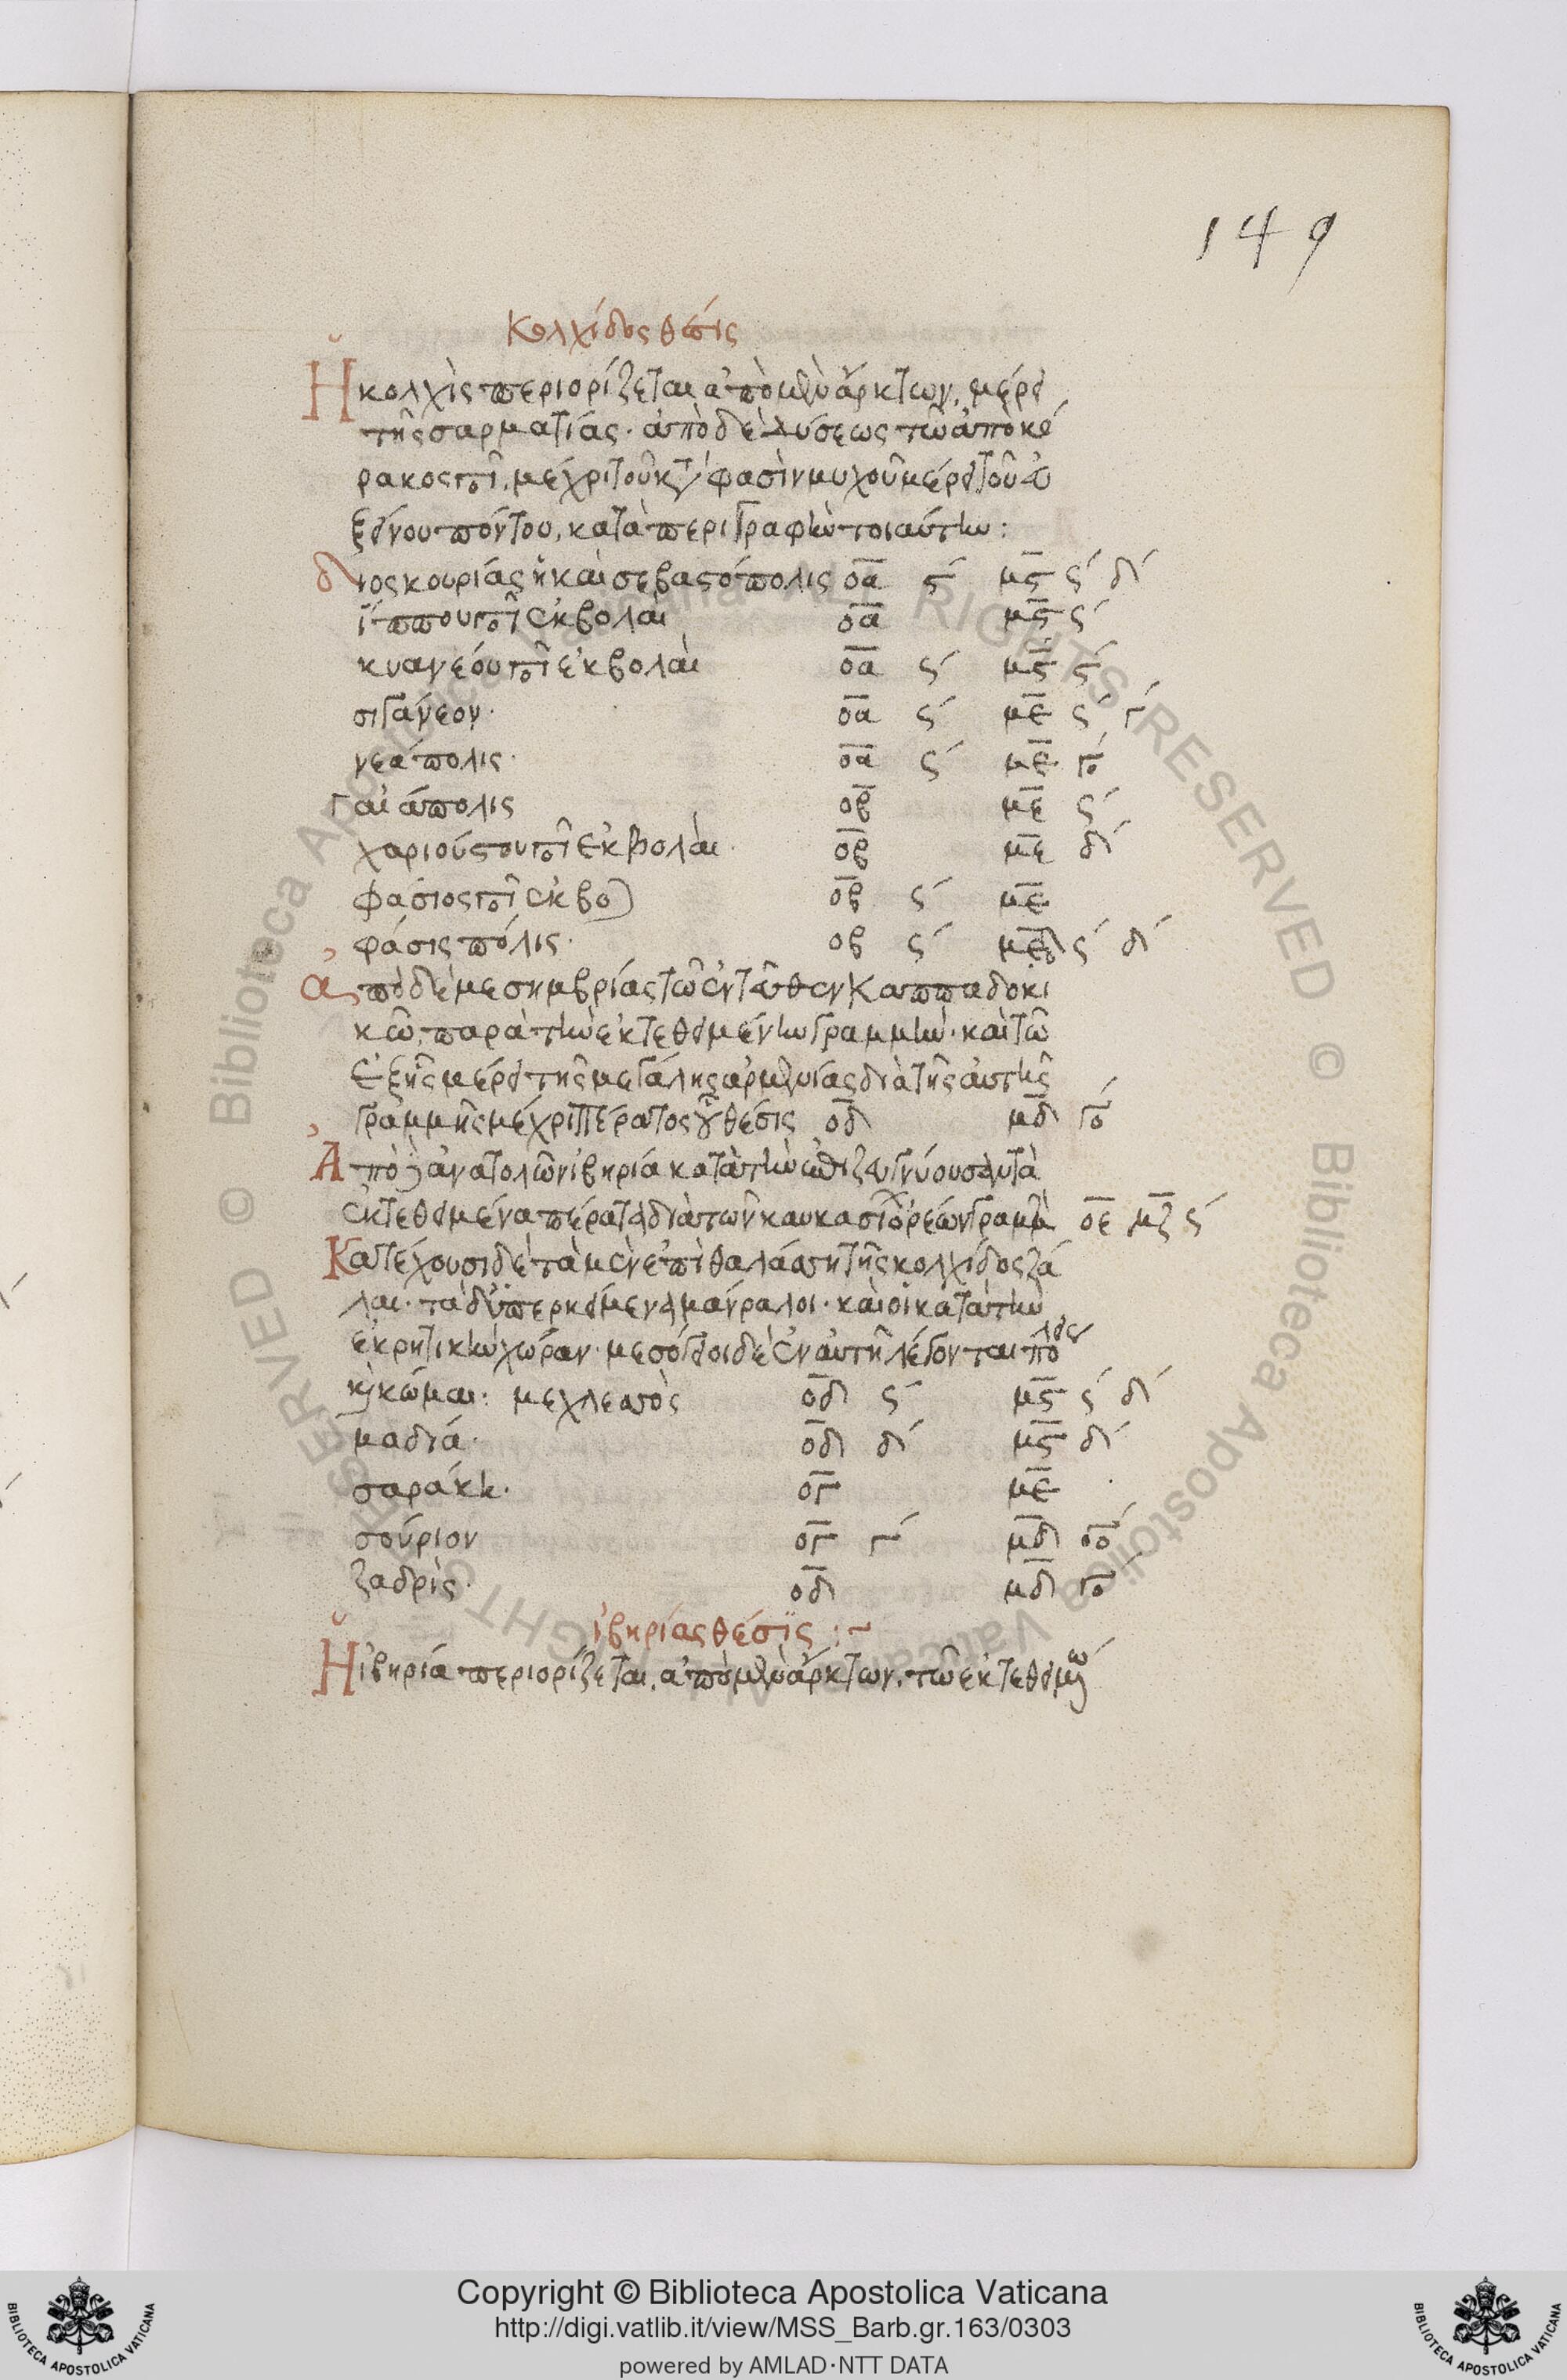 149
Κολχίδος θέσις
Ἡ κολχὶς περιορίζεται ἀπὸ μὲν ἄρκτων, μέρει
τῆς σαρματίας· ἀπὸ δὲ δύσεως τῶ ἀπὸ κό
ρακος πο, μέχρι τοῦ κτ φάσιν μυχοῦ μέρει τοῦ εὐ
ξείνου πόντου, κατὰ περιγραφὴν τοιαύτην:
διοσκουρίας ἡ καὶ σεβαστόπολις οα ϛ´ μϛ ϛ´ δ´
ἵππου πο ἐκβολαὶ οα μϛ ϛ´
κυανέου πο ἐκβολαὶ οα ϛ´ μϛ ϛ´
σιγάνεον· οα ϛ´ με ϛ´ γ´
νεάπολις· οα ϛ´ με γο
γαιάπολις οβ με ϛ´
χαριούστου πο ἐκβολαὶ· οβ με δ´
φάσιος πο ἐκβο οβ ϛ´ με
φάσις πόλις· οβ ϛ´ ϛ´ δ´
ἀπὸ δὲ μεσημβρίας τῶ ἐντεῦθεν Καππαδοκι
κῶ, παρὰ τὴν ἐκτεθειμένην γραμμὴν· καὶ τῶ
ἑξῆς μέρει τῆς μεγάλης ἀρμενίας διὰ τῆς αὐτῆς
γραμμῆς μέχρι πέρατος οὗ θέσις οδ μδ γο
Ἀπὸ δὲ ἀνατολῶν ἰβηρία κατὰ τὴν ἐπιζευγνύουσαν τὰ
ἐκτεθειμένα πέρατα διὰ τῶν καυκασί ὀρέων γραμμὴν οε μζ ϛ´
Κατέχουσι δὲ τὰ μὲν ἐπὶ θαλάσση τῆς κολχίδος λά
λαι· τὰ δ' ὑπερκείμενα μάνραλοι· καὶ οἱ κατὰ τὴν
ἐκρητικὴν χώραν· μεσόγειοι δὲ ἐν αὐτῆ λέγονται πόλεις
καὶ κῶμαι: μεχλεσσὸς οδ ϛ´ μϛ ϛ´ δ´
μαδιά· οδ δ´ μϛ δ´
σαράκη· ογ με
σούριον ογ γ´ μδ γο
ζαδρίς· οδ μδ γο
ἰβηρίας θέσϊς :~
Ἡ ἰβηρία περιορίζεται, ἀπὸ μὲν ἄρκτων, τῶ ἐκτεθειμένω
Copyright © Biblioteca Apostolica Vaticana
http://digi.vatlib.it/view/MSS_Barb.gr.163/0303
powered by AMLAD·NTT DATA